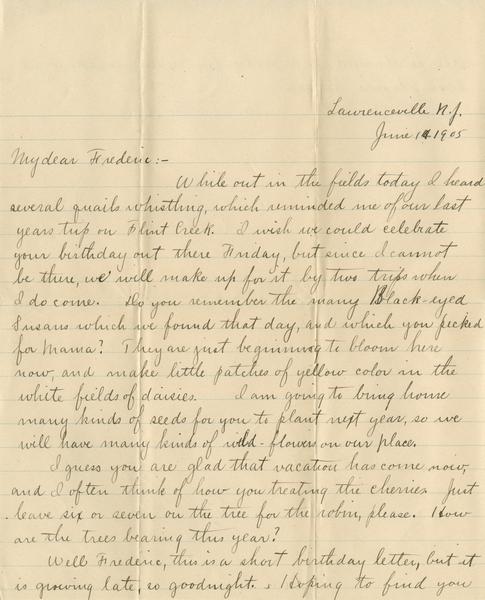 Lawrenceville N.J.
June 14 1905
My dear Frederic:-
While out in the fields today I heard
several quails whistling, which reminded me of our last
years trip on Flint Creek. I wish we could celebrate
your birthday out there Friday, but since I cannot
be there, we'll will make up for it by two trips when
I do come. Do you remember the many Black-eyed
Susans which we found that day, and which you picked
for Mama? They are just beginning to bloom here
now, and make little patches of yellow color in the
white fields of daisies. I am going to bring home
many kinds of seeds for you to plant next year, so we
will have many kinds of wild-flowers on our place.
I guess you are glad that vacation has come now,
and I often think of how you treating the cherries. Just
leave six or seven on the tree for the robin, please. How
are the trees bearing this year?
Well Frederic, this is a short birthday letter, but it
is growing late, so goodnight. Hoping to find you